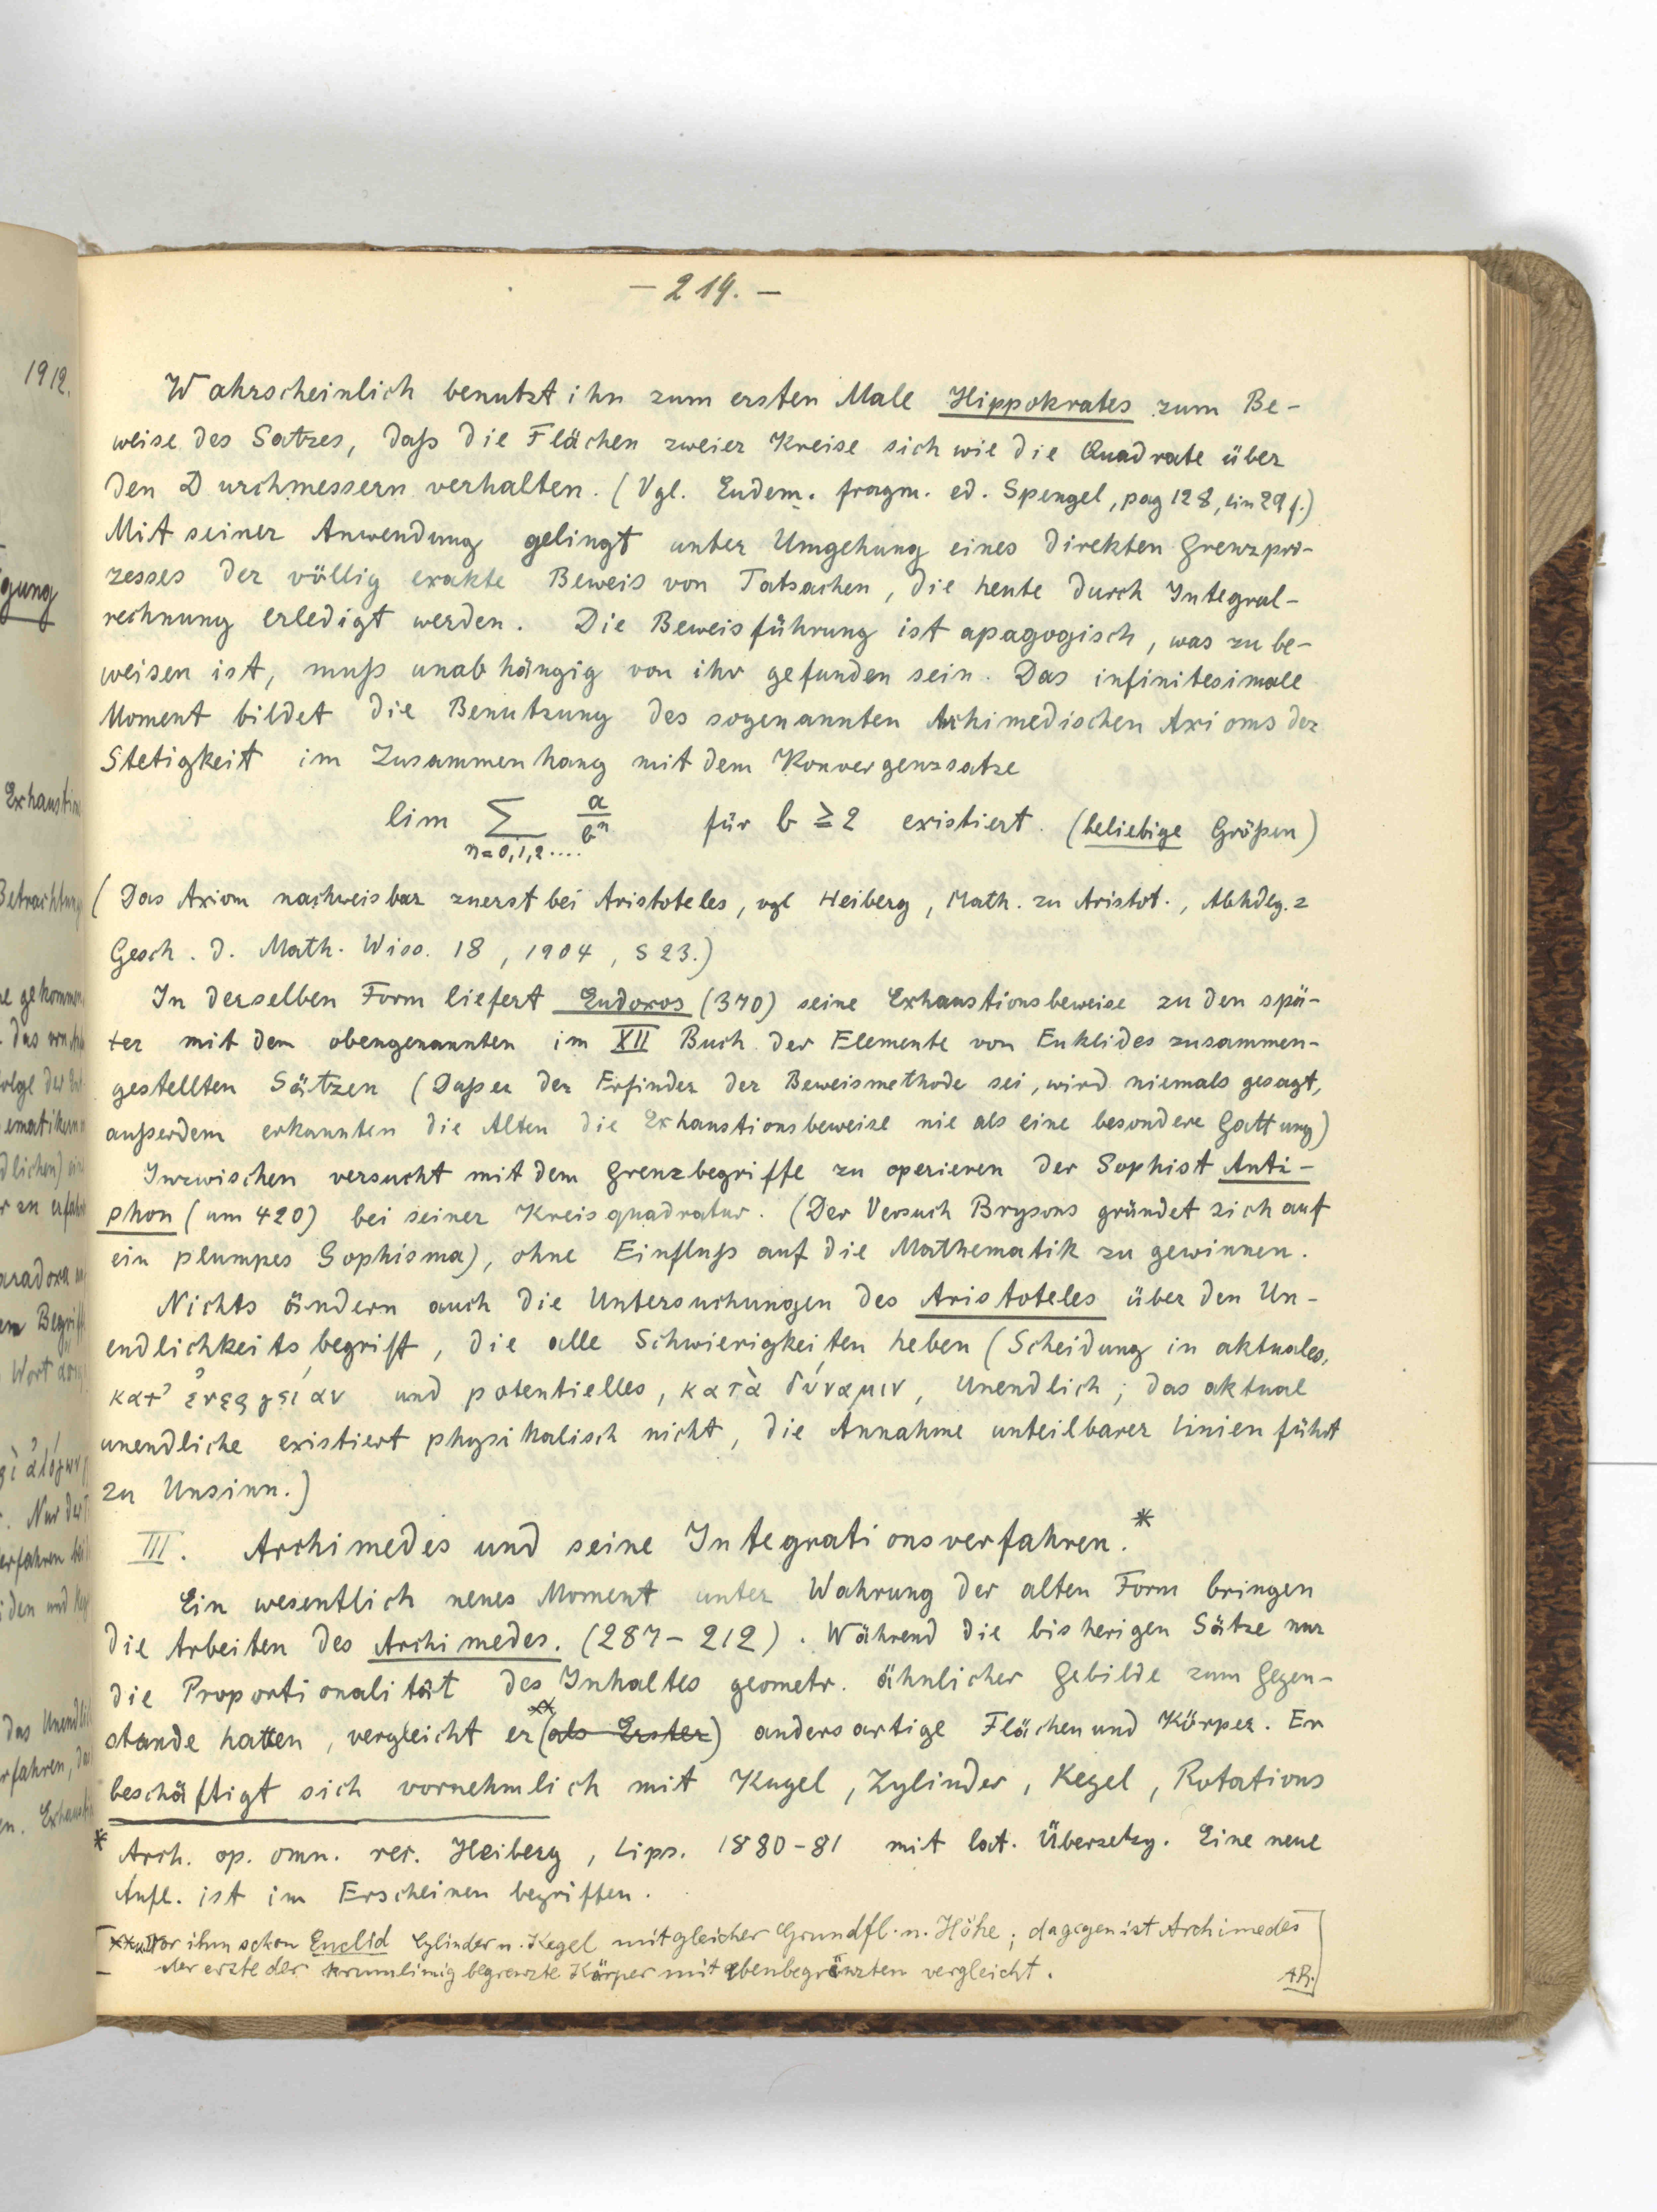 — 219. —
Wahrscheinlich benutzt ihn zum ersten Male Hippokrates zum Be-
weise des Satzes, daß die Flächen zweier Kreise sich wie die Quadrate über
den Durchmessern verhalten. (Vgl. Eudem. fragm. ed. Spengel, pag 128, lin 29 f.)
Mit seiner Anwendung gelingt unter Umgehung eines direkten Grenzpro-
zesses der völlig exakte Beweis von Tatsachen, die heute durch Integral-
rechnung erledigt werden. Die Beweisführung ist apagogisch, was zu be-
weisen ist, muß unabhängig von ihr gefunden sein. Das infinitesimale
Moment bildet die Benutzung des sogenannten Archimedischen Axioms der
Stetigkeit im Zusammenhang mit dem Konvergenzsatze
lim ∑ a/bⁿ für b ≥ 2 existiert. (beliebige Größen)
n=0,1,2....
(Das Axiom nachweisbar zuerst bei Aristoteles, vgl Heiberg, Math. zu Aristot., Abhdlg. z
Gesch. d. Math. Wiss. 18, 1904, S 23.)
In derselben Form liefert Eudoxos (370) seine Exhaustionsbeweise zu den spä-
ter mit dem obengenannten im XII Buch der Elemente von Euklides zusammen-
gestellten Sätzen (Daß er der Erfinder der Beweismethode sei, wird niemals gesagt,
außerdem erkannten die Alten die Exhaustionsbeweise nie als eine besondere Gattung)
Inzwischen versucht mit dem Grenzbegriffe zu operieren der Sophist Anti-
phon (um 420) bei seiner Kreisquadratur. (Der Versuch Brysons gründet sich auf
ein plumpes Sophisma), ohne Einfluß auf die Mathematik zu gewinnen.
Nichts ändern auch die Untersuchungen des Aristoteles über den Un-
endlichkeitsbegriff, die alle Schwierigkeiten heben (Scheidung in aktuales,
κατ' ἐνεργείαν und potentielles, κατὰ δύναμιν, Unendlich; das aktual
unendliche existiert physikalisch nicht, die Annahme unteilbarer Linien führt
zu Unsinn.)
III. Archimedes und seine Integrationsverfahren.*
Ein wesentlich neues Moment unter Wahrung der alten Form bringen
die Arbeiten des Archimedes. (287–212). Während die bisherigen Sätze nur
die Proportionalität des Inhaltes geometr. ähnlicher Gebilde zum Gegen-
stande hatten, vergleicht er (als Erster)xx andersartige Flächen und Körper. Er
beschäftigt sich vornehmlich mit Kugel, Zylinder, Kegel, Rotations
* Arch. op. omn. rec. Heiberg, Lips. 1880–81 mit lat. Übersetzg. Eine neue
Aufl. ist im Erscheinen begriffen.
xx Vor ihm schon Euclid Cylinder u. Kegel mit gleicher Grundfl. u. Höhe; dagegen ist Archimedes
der erste der krummlinig begrenzte Körper mit ebenbegränzten vergleicht.
AR.
1912.
gung